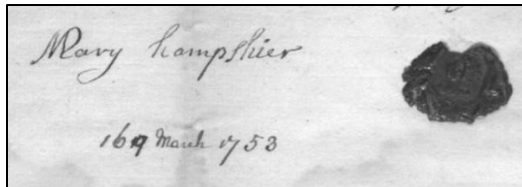 Mary hampshier
March 1753